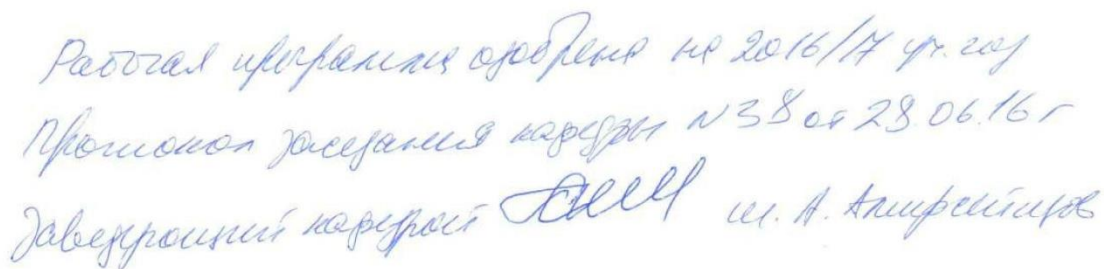 Рабочая программа одобрена на 2016/17 уч. год
Протокол заседания кафедры N 38 от 28.06.16 г
Заведующий кафедрой И. А.